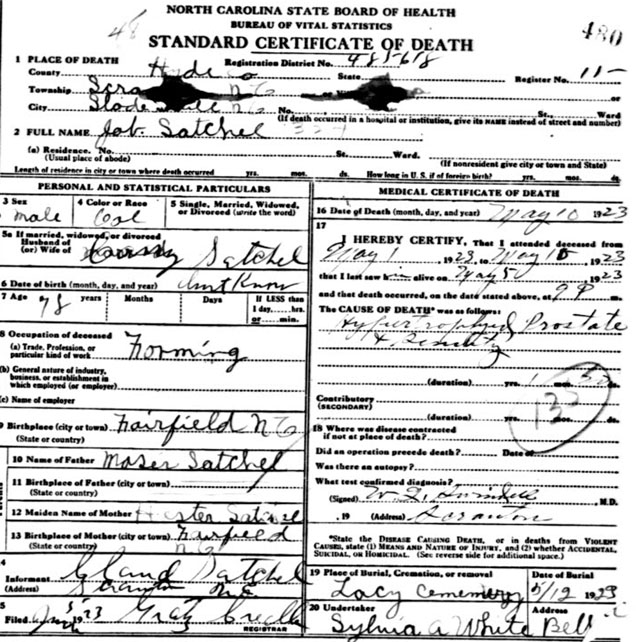 NORTH CAROLINA STATE BOARD OF HEALTH
BUREAU OF VITAL STATISTICS
STANDARD CERTIFICATE OF DEATH
48
480
1 PLACE OF DEATH Registration District No. 485-618
County Hyde Co State Register No. 11-
Township N C or
City N C No. St. Ward
(If death occurred in a hospital or institution, give its NAME instead of street and number)
2 FULL NAME Job. Satchel
(a) Residence. No. St. Ward.
(Usual place of abode) (If nonresident give city or town and State)
Length of residence in city or town where death occurred yrs. mos. ds. How long in U.S. if of foreign birth? yrs. mos. ds.
PERSONAL AND STATISTICAL PARTICULARS
3 Sex 4 Color or Race 5 Single, Married, Widowed, or Divorced (write the word)
male Col
5a If married, widowed, or divorced
Husband of
(or) Wife of Satchel
6 Date of birth (month, day, and year) dont Know
7 Age 78 years Months Days If LESS than 1 day, hrs. or min.
8 Occupation of deceased
(a) Trade, Profession, or particular kind of work Forming
(b) General nature of industry, business, or establishment in which employed (or employer)
(c) Name of employer
9 Birthplace (city or town) Fairfield N C
(State or country)
10 Name of Father Moser Satchel
11 Birthplace of Father (city or town)
(State or country)
12 Maiden Name of Mother Hester Satchel
13 Birthplace of Mother (city or town) Fairfield
(State or country) N C
14
Informant Satchel
(Address) Scranton N.C.
15
Filed 1923 REGISTRAR
MEDICAL CERTIFICATE OF DEATH
16 Date of Death (month, day, and year) May 10 1923
17
I HEREBY CERTIFY, That I attended deceased from
May 1, 1923, to May 10 1923
that I last saw him alive on May 5 1923
and that death occurred, on the date stated above, at 9 P m.
The CAUSE OF DEATH* was as follows:
Hypertrophied Prostate
+ Senility
(duration) yrs. mos. ds.
133
Contributory
(SECONDARY)
(duration) yrs. mos. ds.
18 Where was disease contracted
if not at place of death?
Did an operation precede death? Date of
Was there an autopsy?
What test confirmed diagnosis?
(Signed) M.D.
, 19 (Address) Scranton
*State the DISEASE CAUSING DEATH, or in deaths from VIOLENT CAUSES, state (1) MEANS AND NATURE OF INJURY, and (2) whether ACCIDENTAL, SUICIDAL, OR HOMICIDAL. (See reverse side for additional space.)
19 Place of Burial, Cremation, or removal Date of Burial
Lacy Cememery 5/12 1923
20 Undertaker Address
Sylvia A White Bell